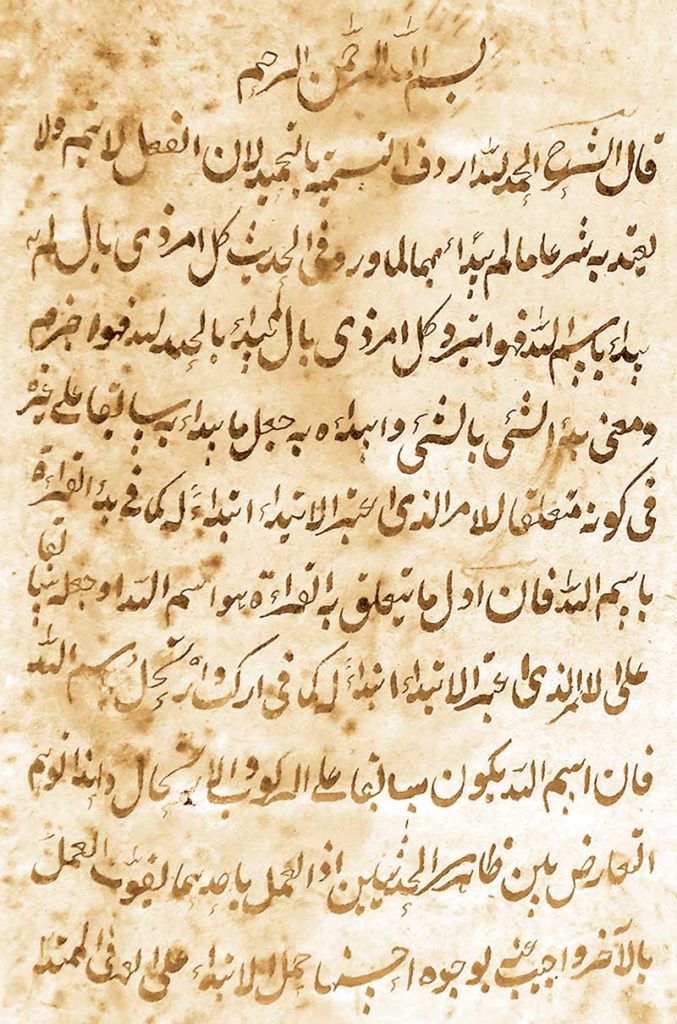 بسم الله الرحمن الرحيم
قال الشرح الحمد لله اردف التسمية بالتحميد لان الفعل لا يتم ولا
يعتد به شرعا ما لم يبداء بهما لما ورد فى الحديث كل امر ذى بال لم
يبداء باسم الله فهو ابتر وكل امر ذى بال لم يبداء بالحمد لله فهو اجزم
ومعنى بدء الشئ بالشئ وابتداءه به جعل ما يبداء به سابقا على غيره
فى كونه متعلقا للامر الذى اعتبر الابتداء ابتداءً له كما فى بدء القراءة
باسم الله فان اول ما يتعلق به القراءة هو اسم الله او جعله سابقا
على الامر الذى اعتبر الابتداء ابتداءً له كما فى اركب وارتحل بسم الله
فان اسم الله يكون سابقا على الركوب والارتحال واذا توهم
التعارض بين ظاهر الحديثين اذ العمل باحدهما لفوّت العمل
بالآخر واجيب عنه بوجوه احسنها حمل الابتداء على العرفى الممتد